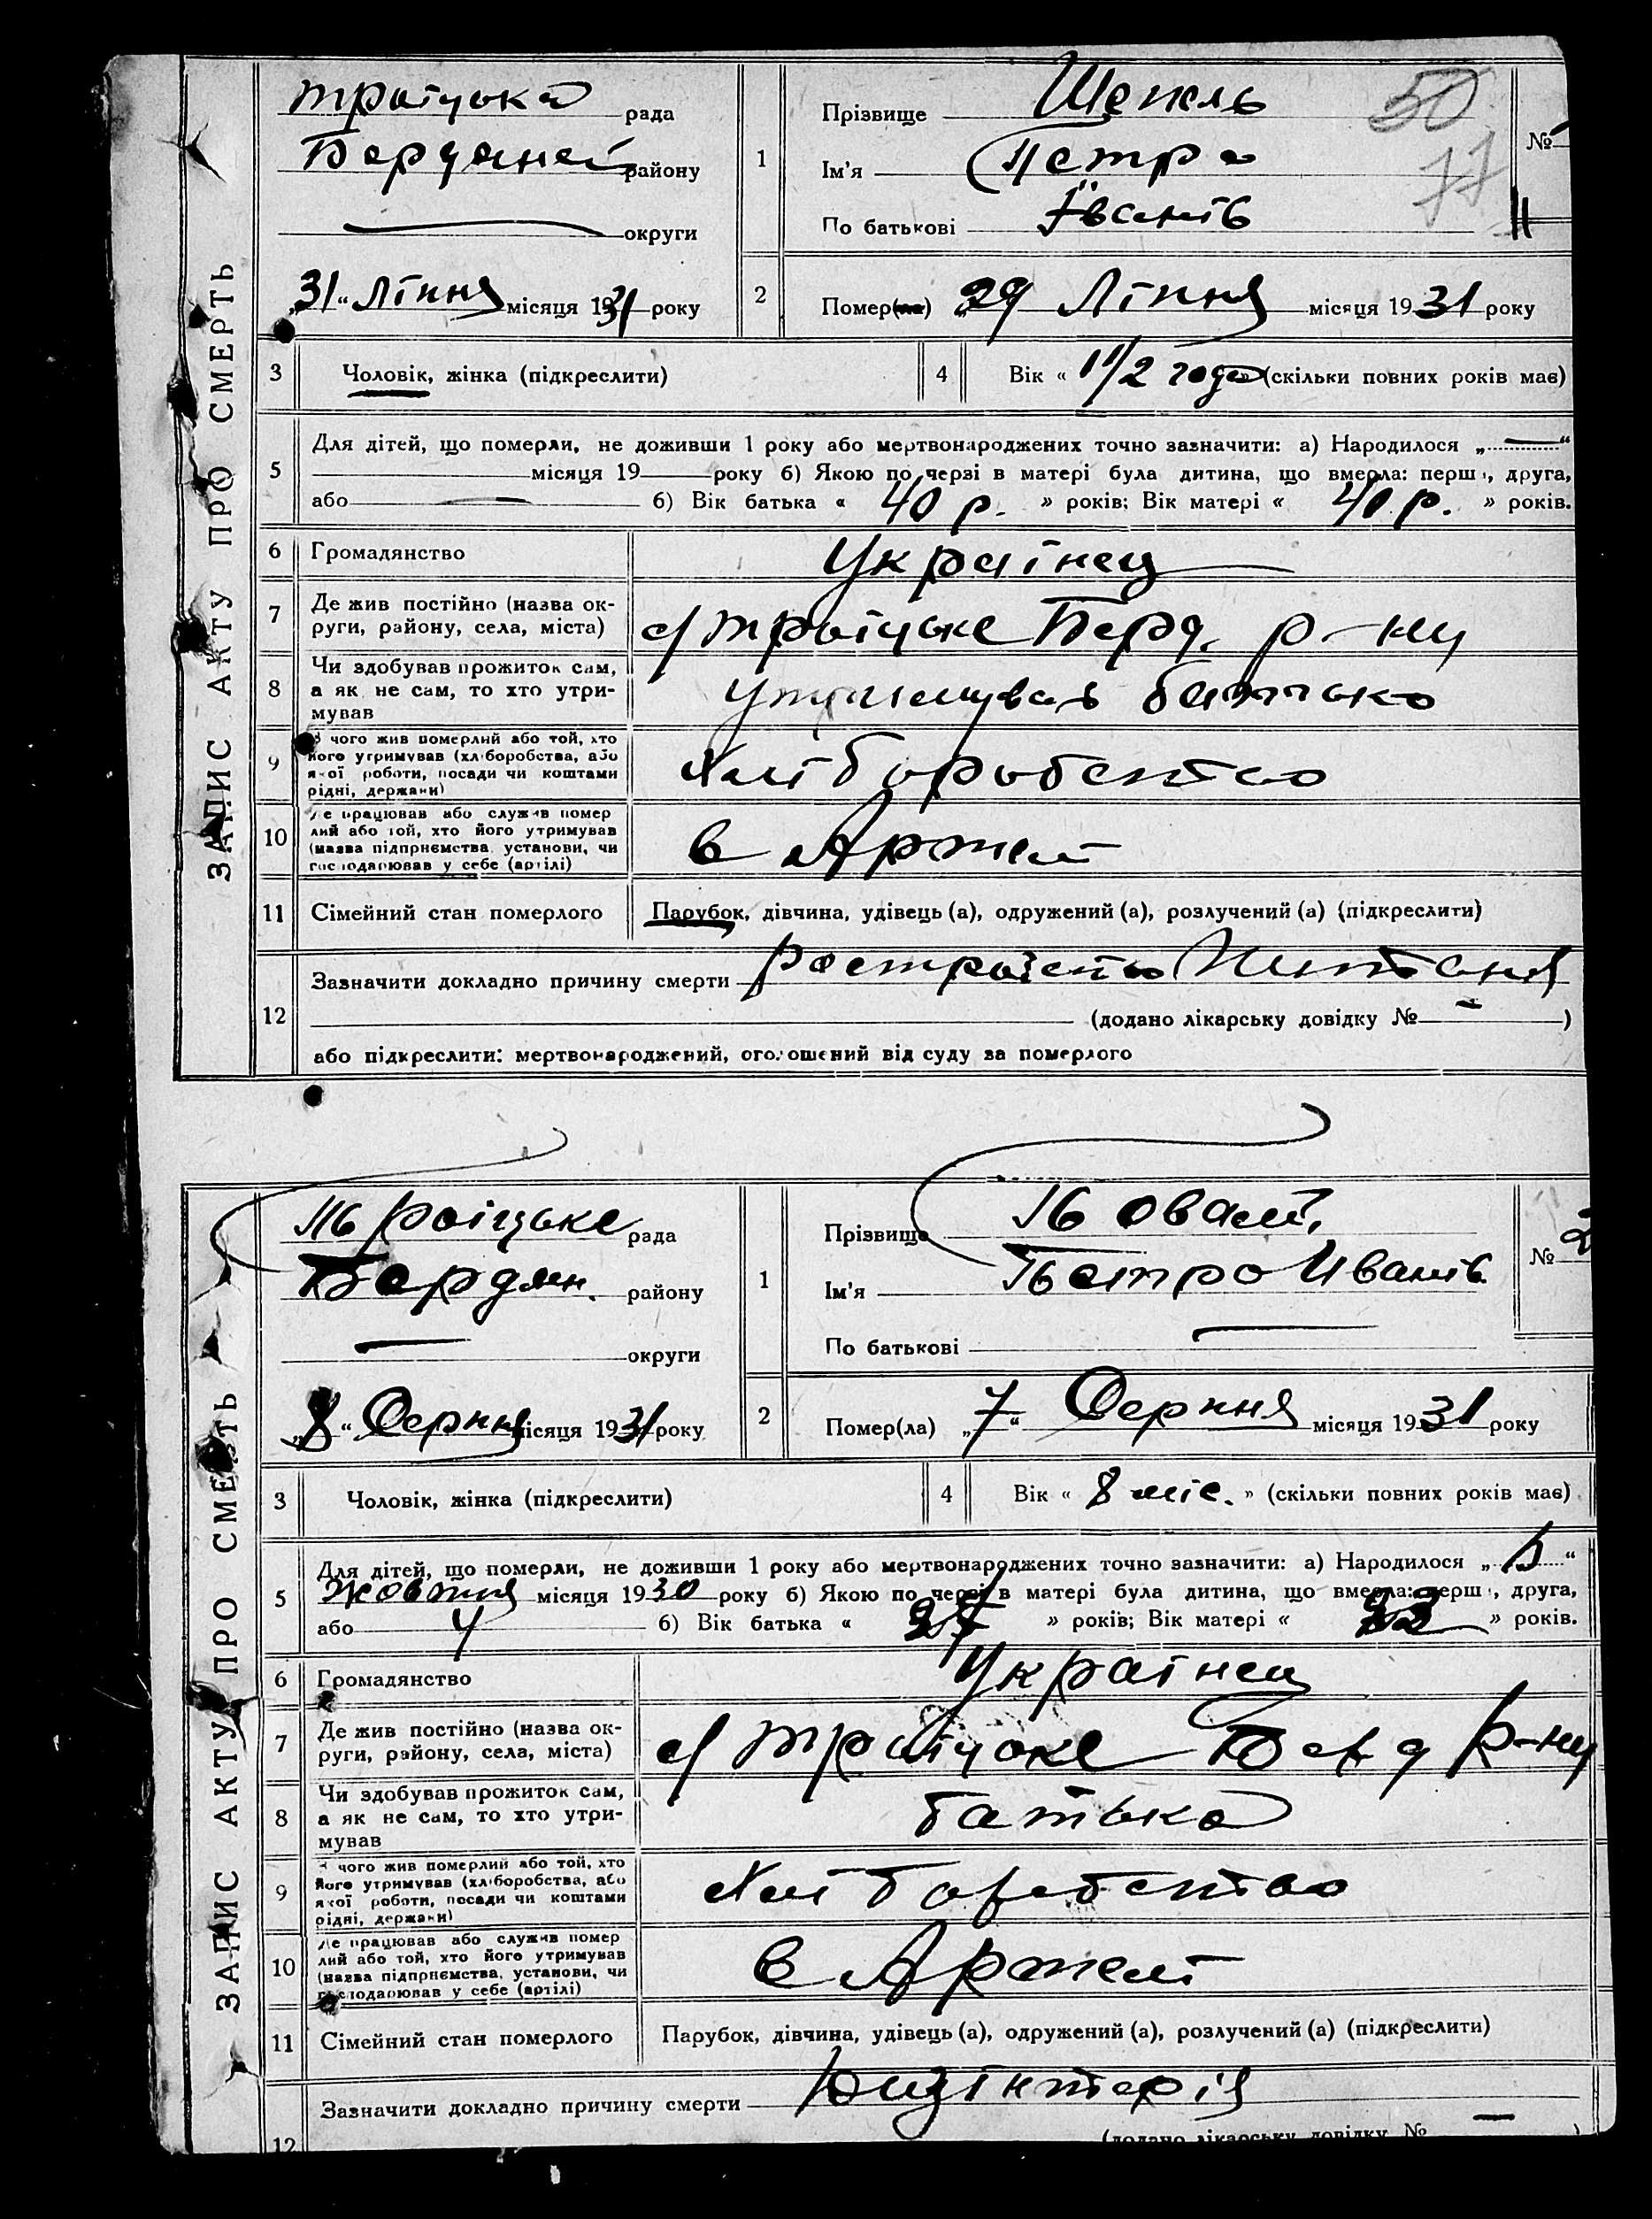 ЗАПИС АКТУ ПРО СМЕРТЬ
Троіцька рада
Бердянсь району
округи
„31“ Ліпня місяця 1931 року
1
Прізвище
Ім'я Петро
По батькові Іванів
50
77
№
2
Помер(ла) „29 Ліпня місяця 1931 року
3 Чоловік, жінка (підкреслити)
4 Вік « 1 1/2 года» (скільки повних років має)
5
Для дітей, що померли, не доживши 1 року або мертвонароджених точно зазначити: а) Народилося „ — “
місяця 19 року б) Якою по черзі в матері була дитина, що вмерла: перша, друга,
або — б) Вік батька « 40 р. » років; Вік матері « 40 р. » років.
6 Громадянство Украінец
7 Де жив постійно (назва ок-
руги, району, села, міста) с/Троіцьке Берд. р-ну
8 Чи здобував прожиток сам,
а як не сам, то хто утри-
мував утримував батько
9 З чого жив померлий або той, хто
його утримував (хліборобства, або
якої роботи, посади чи коштами
рідні, держави) Хліборобство
10 Де працював або служив помер
лий або той, хто його утримував
(назва підприємства, установи, чи
господарював у себе (артілі) в Артелі
11 Сімейний стан померлого Парубок, дівчина, удівець (а), одружений (а), розлучений (а) (підкреслити)
12
Зазначити докладно причину смерти
(додано лікарську довідку № — )
або підкреслити: мертвонароджений, оголошений від суду за померлого
ЗАПИС АКТУ ПРО СМЕРТЬ
Троіцьке рада
Бердян. району
округи
„8“ Серпня місяця 1931 року
1
Прізвище
Ім'я Петро Іванів
По батькові —
№ 2
2
Помер(ла) „7“ Серпня місяця 1931 року
3 Чоловік, жінка (підкреслити)
4 Вік « 8 міс. » (скільки повних років має)
5
Для дітей, що померли, не доживши 1 року або мертвонароджених точно зазначити: а) Народилося „
Жовтня місяця 1930 року б) Якою по черзі в матері була дитина, що вмерла: перша, друга,
або 4 б) Вік батька « » років; Вік матері « » років.
6 Громадянство Украінец
7 Де жив постійно (назва ок-
руги, району, села, міста) с/Троіцьке Берд р-ну
8 Чи здобував прожиток сам,
а як не сам, то хто утри-
мував батько
9 З чого жив померлий або той, хто
його утримував (хліборобства, або
якої роботи, посади чи коштами
рідні, держави) Хліборобство
10 Де працював або служив помер
лий або той, хто його утримував
(назва підприємства, установи, чи
господарював у себе (артілі) в Артелі
11 Сімейний стан померлого Парубок, дівчина, удівець (а), одружений (а), розлучений (а) (підкреслити)
Зазначити докладно причину смерти
12
(додано лікарську довідку № — )